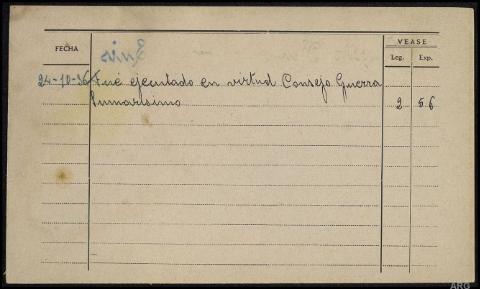 FECHA
VEASE
Leg. Exp.
24-10-36 Fué ejecutado en virtud Consejo Guerra
Sumarisimo 2 56
ARG